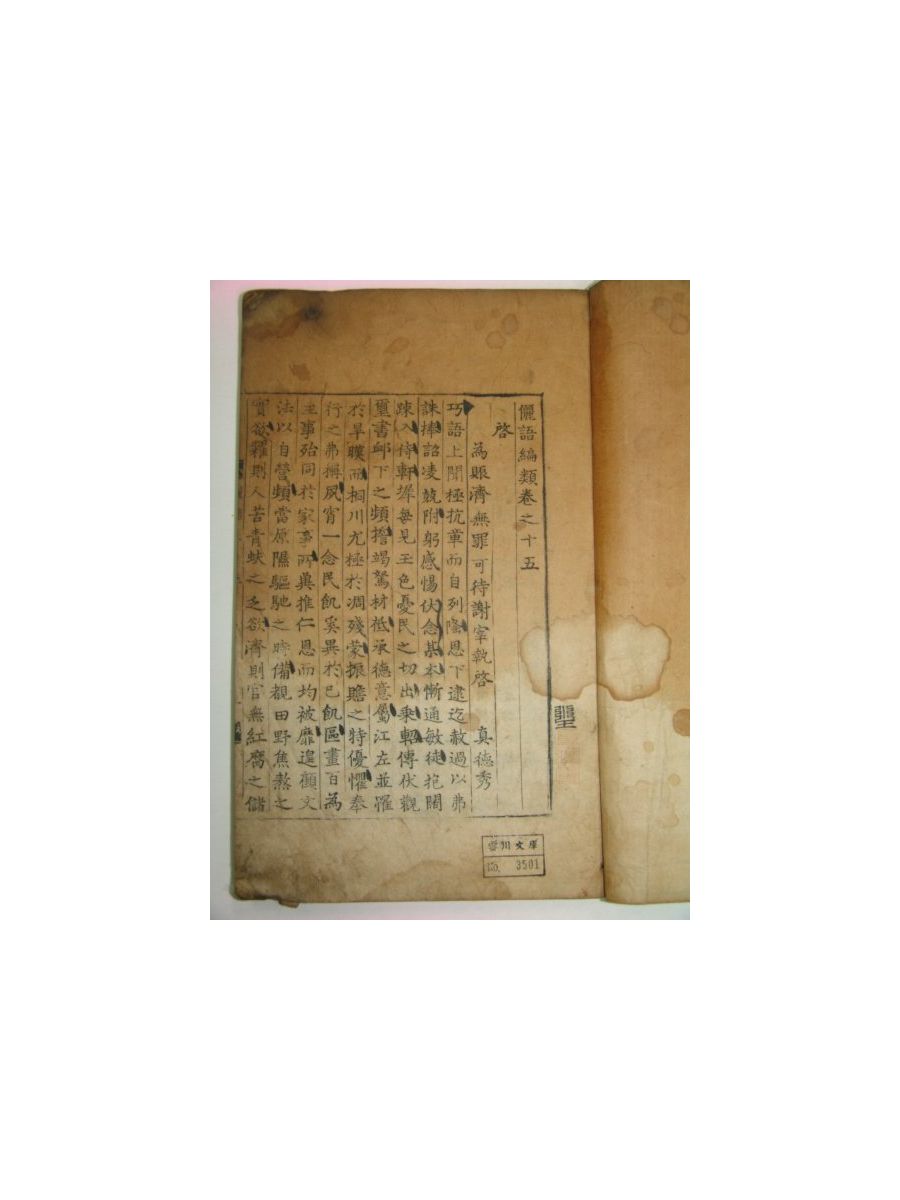 儷語編類卷之十五
啓
為賑濟無罪可待謝宰執啓 真德秀
巧語上聞極抗章而自列隆恩下逮迄赦過以弗
誅捧詔凌兢附躬感惕伏念某本慚通敏徒抱闊
踈入侍軒墀每見王色憂民之切出乘軺傳伏觀
璽書卹下之頻擔竭駑材祗承德意屬江左並罹
於旱暵而桐川尤極於凋殘蒙振贍之特優懼奉
行之弗稱夙宵一念民飢奚異於己飢區畫百為
主事殆同於家事所兾推仁恩而均被靡遑顧文
法以自營頻當原隰驅馳之時備覩田野焦熬之
實欲糴則人苦青蚨之乏欲濟則官無紅腐之儲
文庫
No. 3501